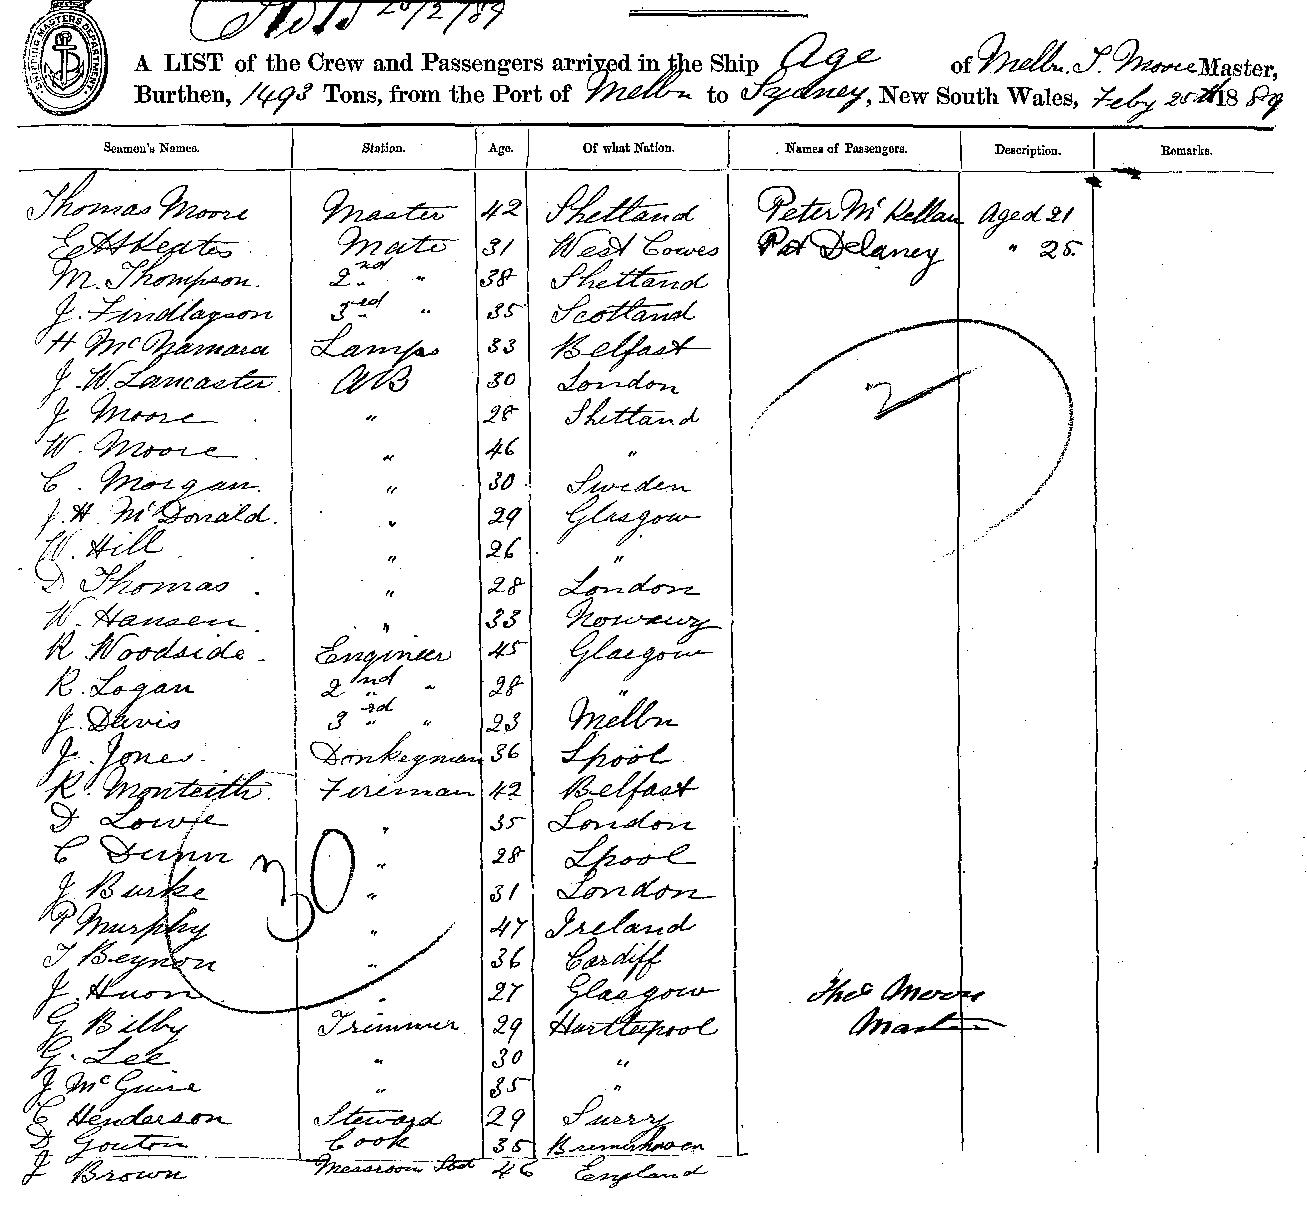 25/2/89
SHIPPING MASTERS DEPARTMENT
A LIST of the Crew and Passengers arrived in the Ship Age of Melbn. T. Moore Master,
Burthen, 1493 Tons, from the Port of Melbn to Sydney, New South Wales, Feby 25th 1889
Seamen's Names. Station. Age. Of what Nation. Names of Passengers. Description. Remarks.
Thomas Moore Master 42 Shetland Peter McKellan Aged 21
Mate 31 West Cowes Pat Delaney " 25
M. Thompson. 2nd " 38 Shetland
J. Findlayson 3rd " 35 Scotland
H McNamara Lamps 33 Belfast
J. W. Lancaster AB 30 London
J Moore " 28 Shetland
W. Moore " 46 "
C. Morgan " 30 Sweden
J. H. McDonald. " 29 Glasgow
W. Hill " 26 "
D Thomas " 28 London
W. Hansen " 33 Nowewy
R Woodside Engineer 45 Glasgow
R. Logan 2nd " 28 "
J. Davis 3rd " 23 Melbn
J. Jones Donkeyman 36 Lpool
R. Monteith Fireman 42 Belfast
D Lowe " 35 London
C Dunn " 28 Lpool
J Burke " 31 London
P Murphy " 47 Ireland
T Beynon " 36 Cardiff
J. Huon " 27 Glasgow Thos Moore
G Bilby Trimmer 29 Hartlepool Master
G. Lee " 30 "
J McGuire " 35 "
C Henderson Steward 29 Surry
D Gouton Cook 35 Bremerhaven
J Brown Messroom Std 46 England
2
30